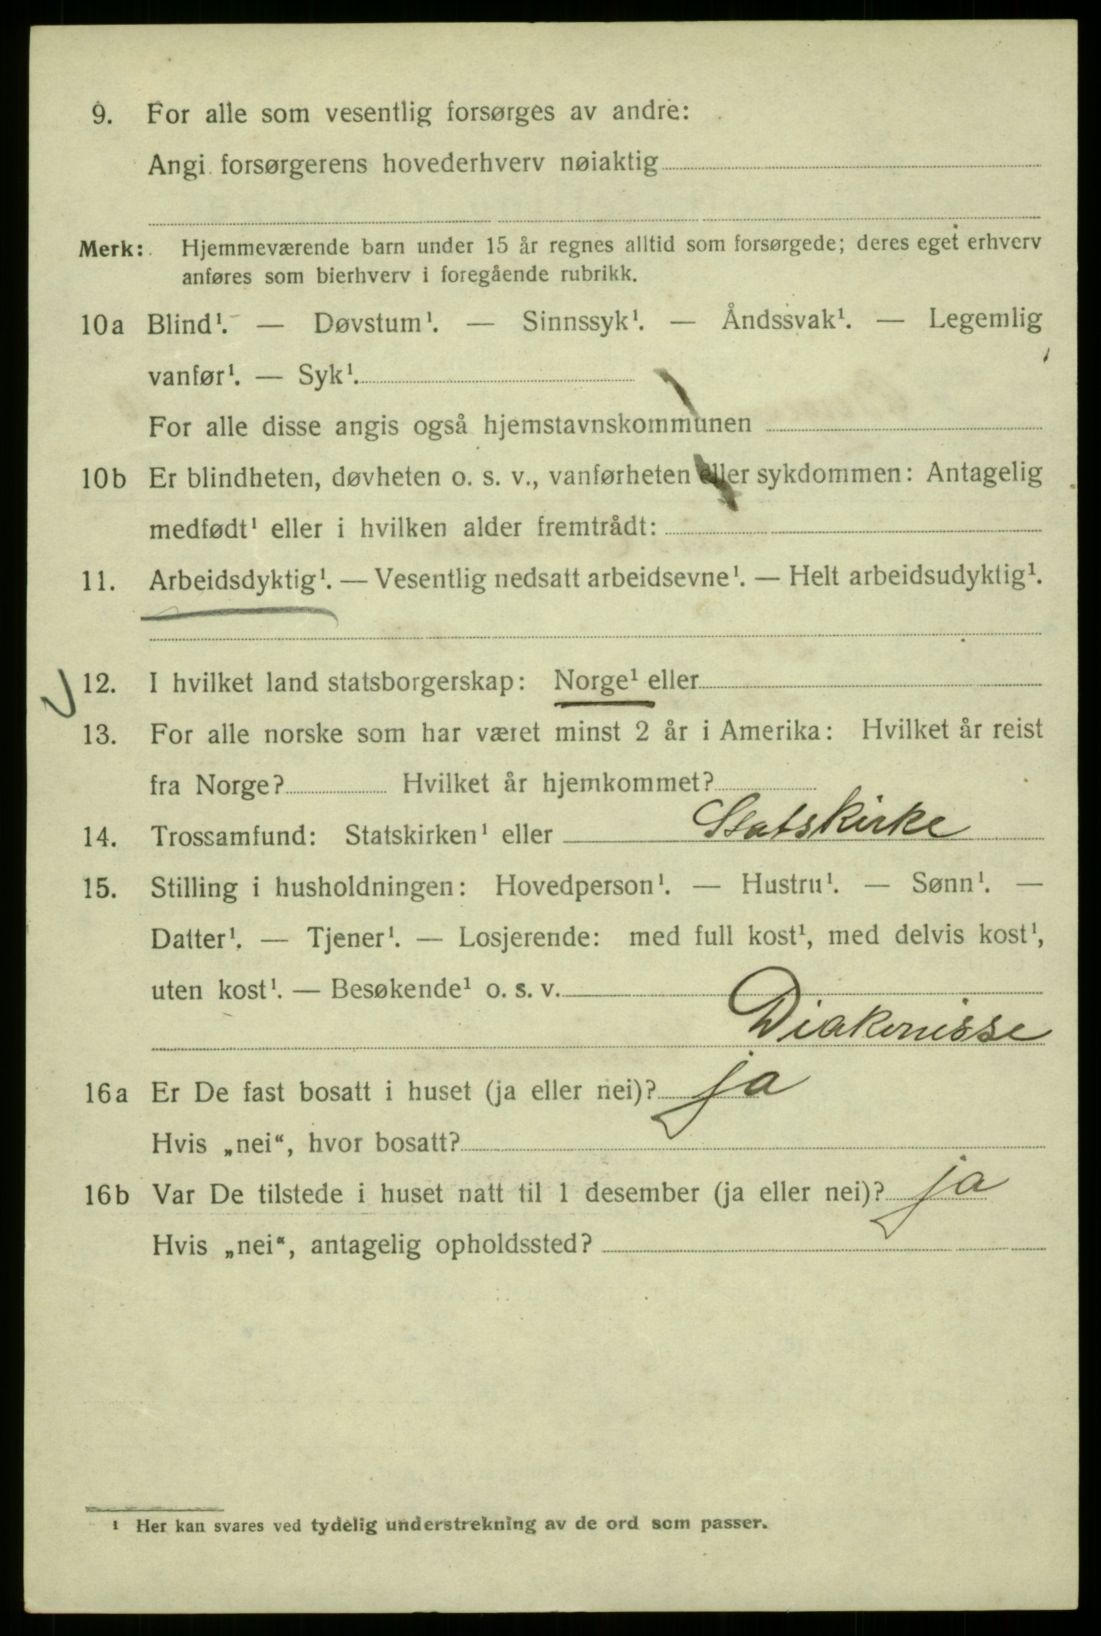 9. For alle som vesentlig forsørges av andre:
Angi forsørgerens hovederhverv nøiaktig
Merk: Hjemmeværende barn under 15 år regnes alltid som forsørgede; deres eget erhverv
anføres som bierhverv i foregående rubrikk.
10a Blind¹. — Døvstum¹. — Sinnssyk¹. — Åndssvak¹. — Legemlig
vanfør¹. — Syk¹.
For alle disse angis også hjemstavnskommunen
10b Er blindheten, døvheten o. s. v., vanførheten eller sykdommen: Antagelig
medfødt¹ eller i hvilken alder fremtrådt:
11. Arbeidsdyktig¹. — Vesentlig nedsatt arbeidsevne¹. — Helt arbeidsudyktig¹.
12. I hvilket land statsborgerskap: Norge¹ eller
13. For alle norske som har været minst 2 år i Amerika: Hvilket år reist
fra Norge? Hvilket år hjemkommet?
14. Trossamfund: Statskirken¹ eller Statskirke
15. Stilling i husholdningen: Hovedperson¹. — Hustru¹. — Sønn¹. —
Datter¹. — Tjener¹. — Losjerende: med full kost¹, med delvis kost¹,
uten kost¹. — Besøkende¹ o. s. v.
Diakonisse
16a Er De fast bosatt i huset (ja eller nei)? ja
Hvis „nei“, hvor bosatt?
16b Var De tilstede i huset natt til 1 desember (ja eller nei)? ja
Hvis „nei“, antagelig opholdssted?
¹ Her kan svares ved tydelig understrekning av de ord som passer.